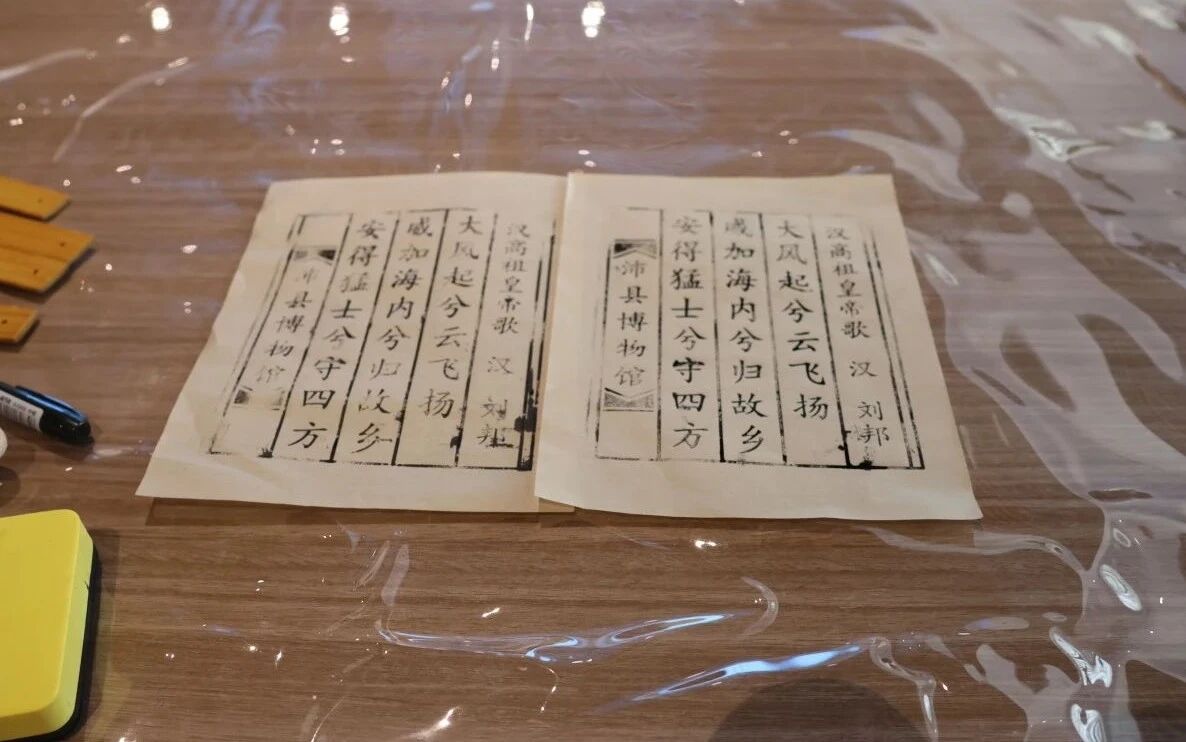 汉高祖皇帝歌 汉 刘邦
大风起兮云飞扬
威加海内兮归故乡
安得猛士兮守四方
沛县博物馆
汉高祖皇帝歌 汉 刘邦
大风起兮云飞扬
威加海内兮归故乡
安得猛士兮守四方
沛县博物馆